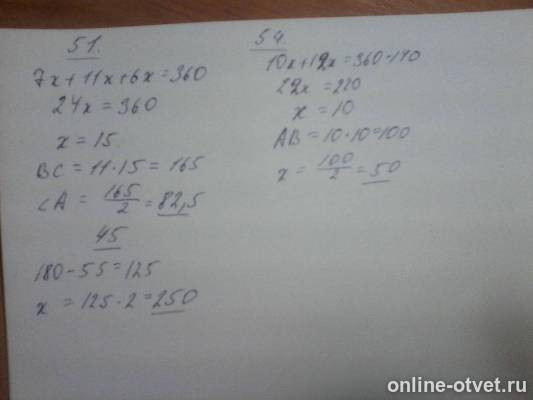 51.
7x+11x+6x=360
24x=360
x=15
BC=11·15=165
∠A = 165/2 = 82,5
45
180-55=125
x = 125·2=250
54.
10x+12x=360-140
22x=220
x=10
AB=10·10=100
x = 100/2 = 50
online-otvet.ru